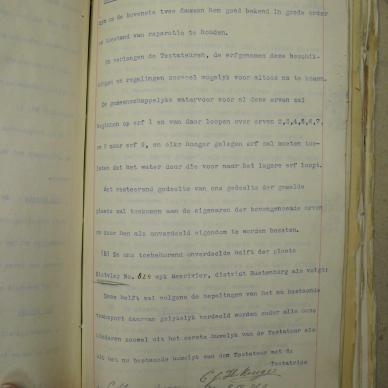 op de bovenste twee dammen hen goed bekend in goede order
en toestand van reparatie te houden.
En verlangen de Testateuren, de erfgenamen deze beschik-
kingen en regelingen zooveel mogelyk voor altoos na te komen.
De gemeenschappelyke watervoor voor al deze erven zal
beginnen op erf 1 en van daar loopen over erven 2,3,4,5,6,7,
en 8 naar erf 9, en elke hooger gelegen erf zal moeten toe-
laten dat het water door die voor naar het lagere erf loopt.
Het resteerend gedeelte van ons gedeelte der gemelde
plaats zal toekomen aan de eigenaren der bovengenoemde erven
en door hen als onverdeeld eigendom te worden bezeten.
(B) De ons toebehorend onverdeelde helft der plaats
No. 824 wyk Hexrivier, district Rustenburg als volgt:
Deze helft zal volgens de bepalingen van het nu bestaande
transport daarvan gelykelyk verdeeld worden onder alle onze
kinderen zoowel uit het eerste huwelyk van de Testateur als
uit het nu bestaande huwelyk van den Testateur met de
Testatrice